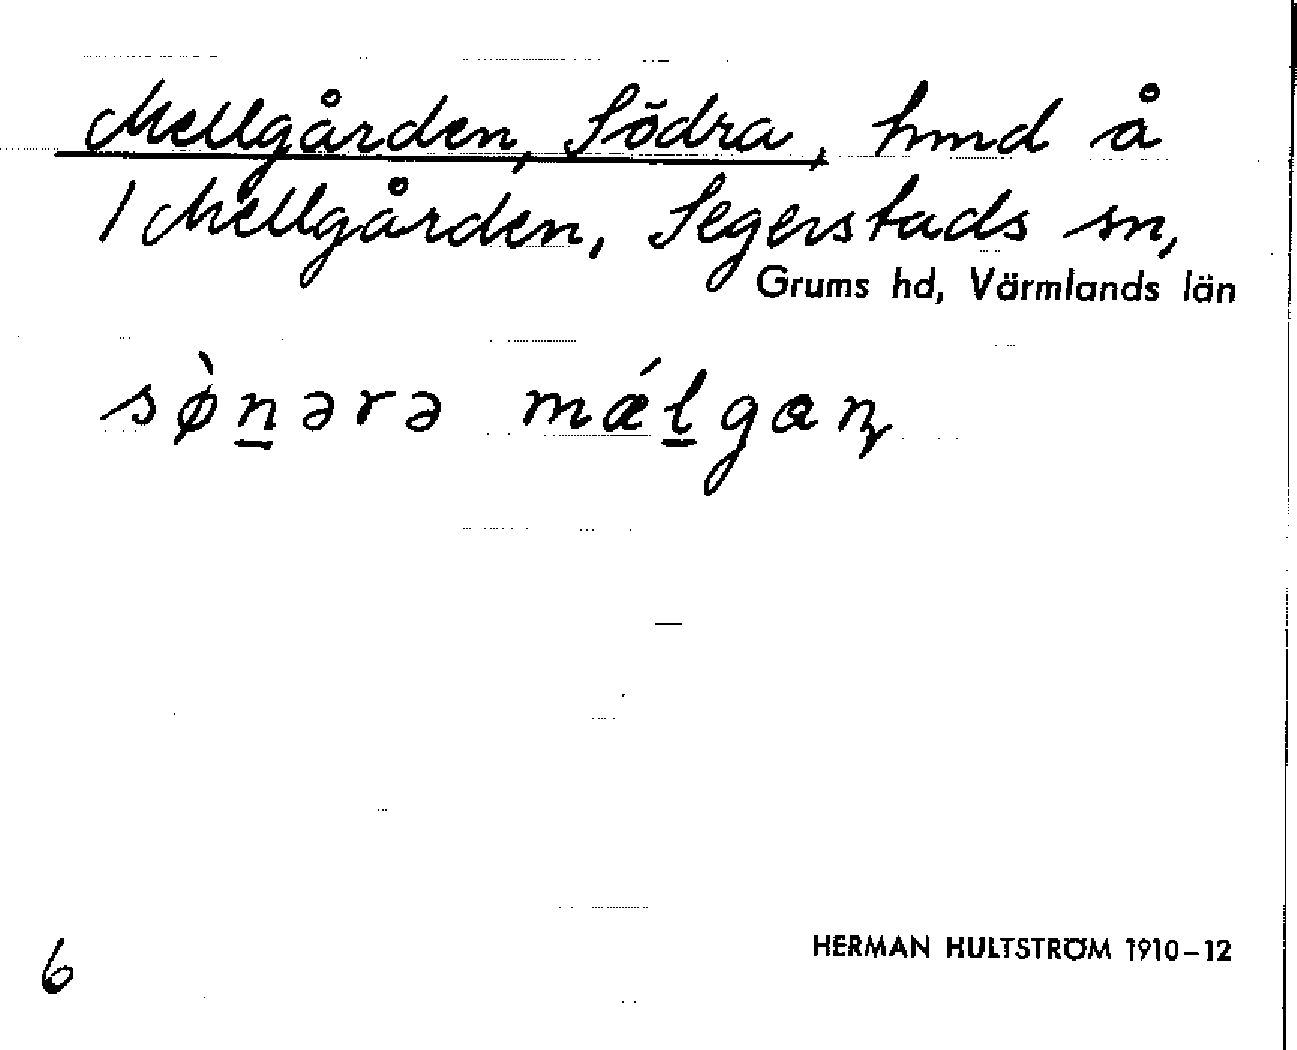 Mellgården, Södra, hmd å
1 Mellgården, Segerstads sn,
Grums hd, Värmlands län
sø̀n̲ərə mǽl̲gaɳ
6
HERMAN HULTSTRÖM 1910–12